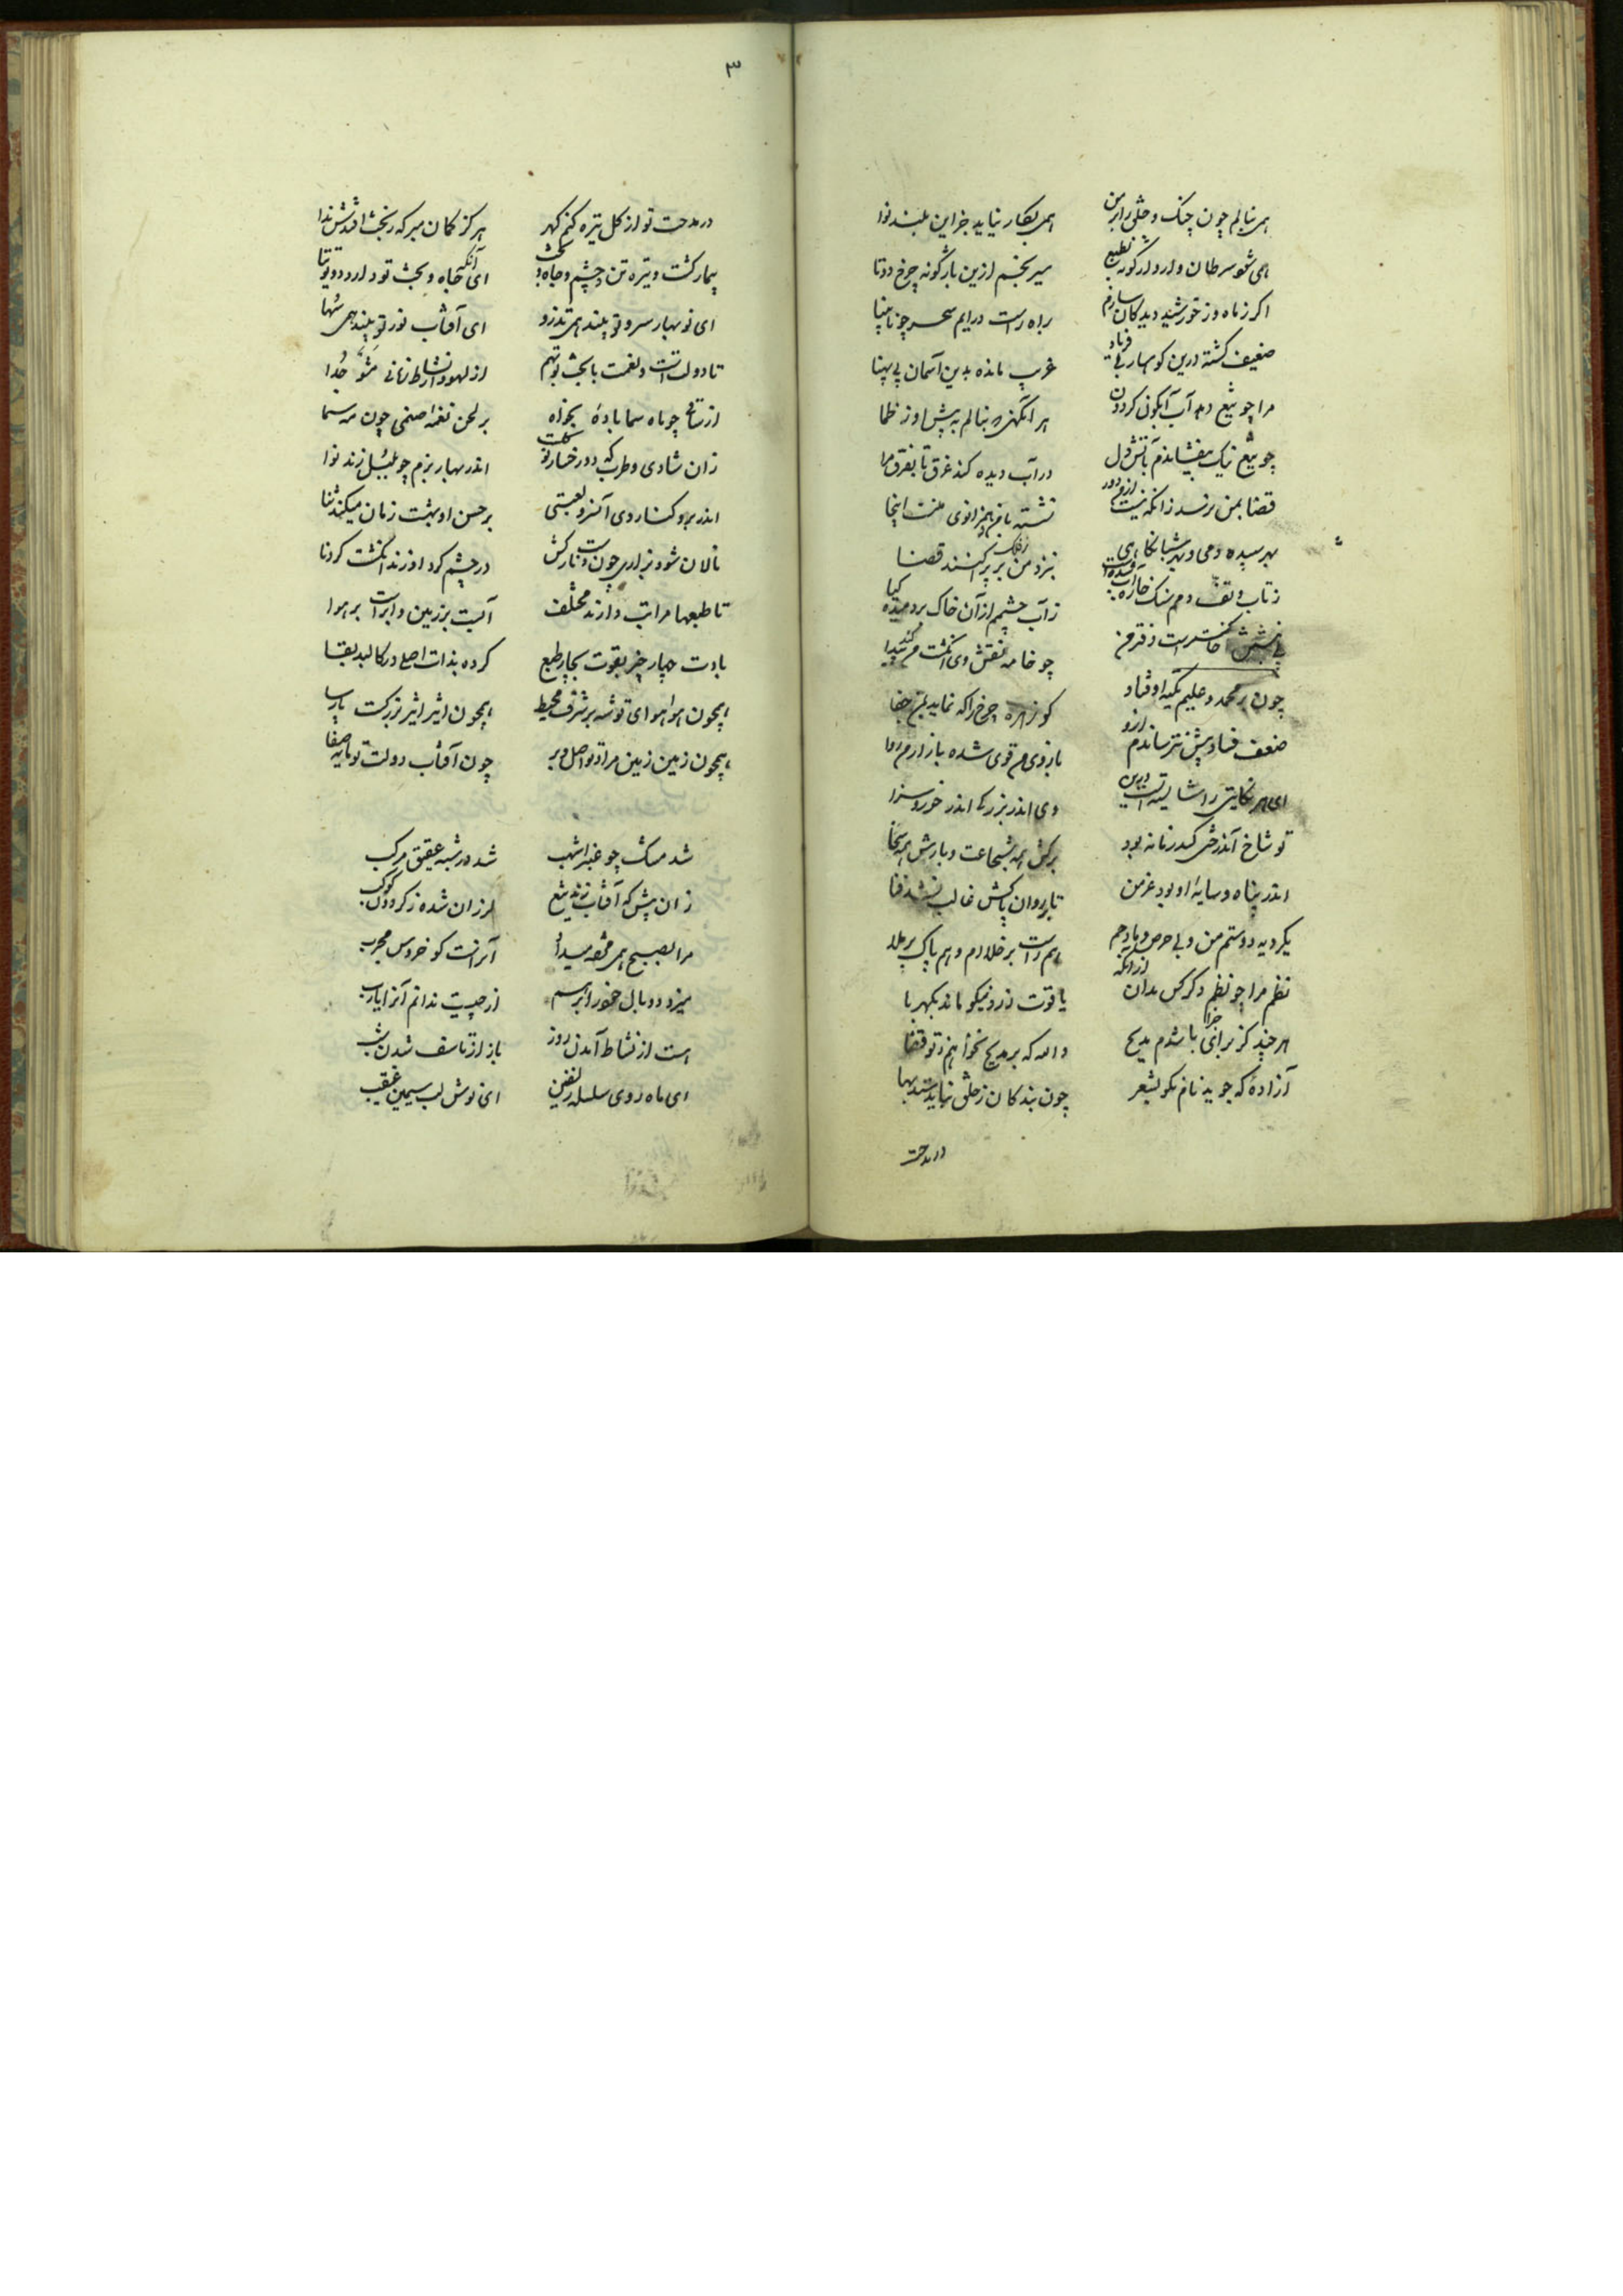 همی بنالم چون چنک و خلق را از من
همی بکار نیاید جز این بلند نوا
همی شوم سرطان وار واژگونه بطبع
سیر نجسم ازین باژگونه چرخ دوتا
اکر ز ماه وز خورشید دیدکان سازم
براه راست درایم بسر چو نابینا
ضعیف کشته درین کوهسار بی فریاد
غریب مانده بدین آسمان بی پهنا
مرا چو تیغ دهد آب آبکون کردون
هر آنکهی که بنالم به پیش او ز ظما
چو تیغ نیک بتفساندم ز آتش دل
در آب دیده کند غرق تا بفرق مرا
قضا بمن نرسد زانکه نیست از من دور
نشسته با من هم زانوی منست اینجا
بهر سپیده دمی و بهر شبانکاهی
بنزد من ز فلک بر پراکنند قضا
ز تاب و تف دمم سنک خاره
ز آب چشمم از آن خاک بردمیده کیا
چو خامه نقش وی انکشت من کند پیدا
چون بر محمد و علیم تکیه اوفتاد
کو زهره چرخ را که نماید بمن جفا
ضعف فساد پیش نترساندم ازو
بازوی من قوی شده بازار من روا
ای هر کفایتی را شایسته و امین
وی اندر بزرکی اندر خور و سزا
تو شاخ آن درختی کاندر زمانه بود
برکش همه شجاعت و بارش همه سخا
اندر پناه و سایه او بود عز من
تا بر روان پاکش غالب نشد فنا
یکرویه دوستم من و بی حرص مادحم
هم راست بر خلا ام و هم پاک بر ملا
نظم مرا چو نظم دکر کس مدان از آنکه
یاقوت زرد نیکو ماند بکهربا
هر چند کز برای جزا باشدم مدیح
والله که بر مدیح نخواهم ز تو قضا
آزاده که جوید نام نکو بشعر
چون بندکان ز خلق نباید ستد بها
در مدحت
۳
در مدحت تو از کل تیره کنم کهر
هرکز کمان مبر که ز بخشت افتدش ندا
بیمار کشت و تیره تن و چشم و جاه و بخت
ای آنکه جاه و بخت تو دارد دو توتیا
ای نوبهار سرو تو بیند همی تذرو
ای آفتاب نور تو بیند همی سها
تا دولت است و نعمت با بخت تو بهم
از لهو و از نشاط زمانی مشو جدا
از ساقی چو ماه سما باده بخواه
بر لحن و نغمه صنمی چون مه سما
زان شادی و طرب که دو رخسار او کلست
اندر بهار بزم چو بلبل زند نوا
اندر بر و کنار وی آن سرو لعبتی
بر حسن او بهشت زمان میکند ثنا
نالان شود بزاری چون دست نازکش
در چشم کرد او زند انکشت کردنا
تا طبعها مراتب دارند مختلف
آبست بر زمین و ابر است بر هوا
بادت چهار چیز بقوت بچار طبع
کرده بذات اصلی در کالبد بقا
همچون هوا هوای تو شه بر شرف محیط
همچون اثیر اثیر بزرکیت پارسا
همچون زمین زمین مراد تو اصل بر
چون آفتاب دولت تو مایه صفا
شد مشک چو عنبر اشهب
شد در شبه عقیق مرکب
زان پیش که آفتاب زند تیغ
لرزان شده ز کردون کوکب
ما را بصبح همی مژده میدهد
آن راست کو خروس مجرب
میزد دو بال خود را بر هم
از چیست ندانم آنرا یارب
هست از نشاط آمدن روز
یا از تاسف شدن شب
ای ماه روی سلسله زلفین
ای نوش لب سیمین غبغب